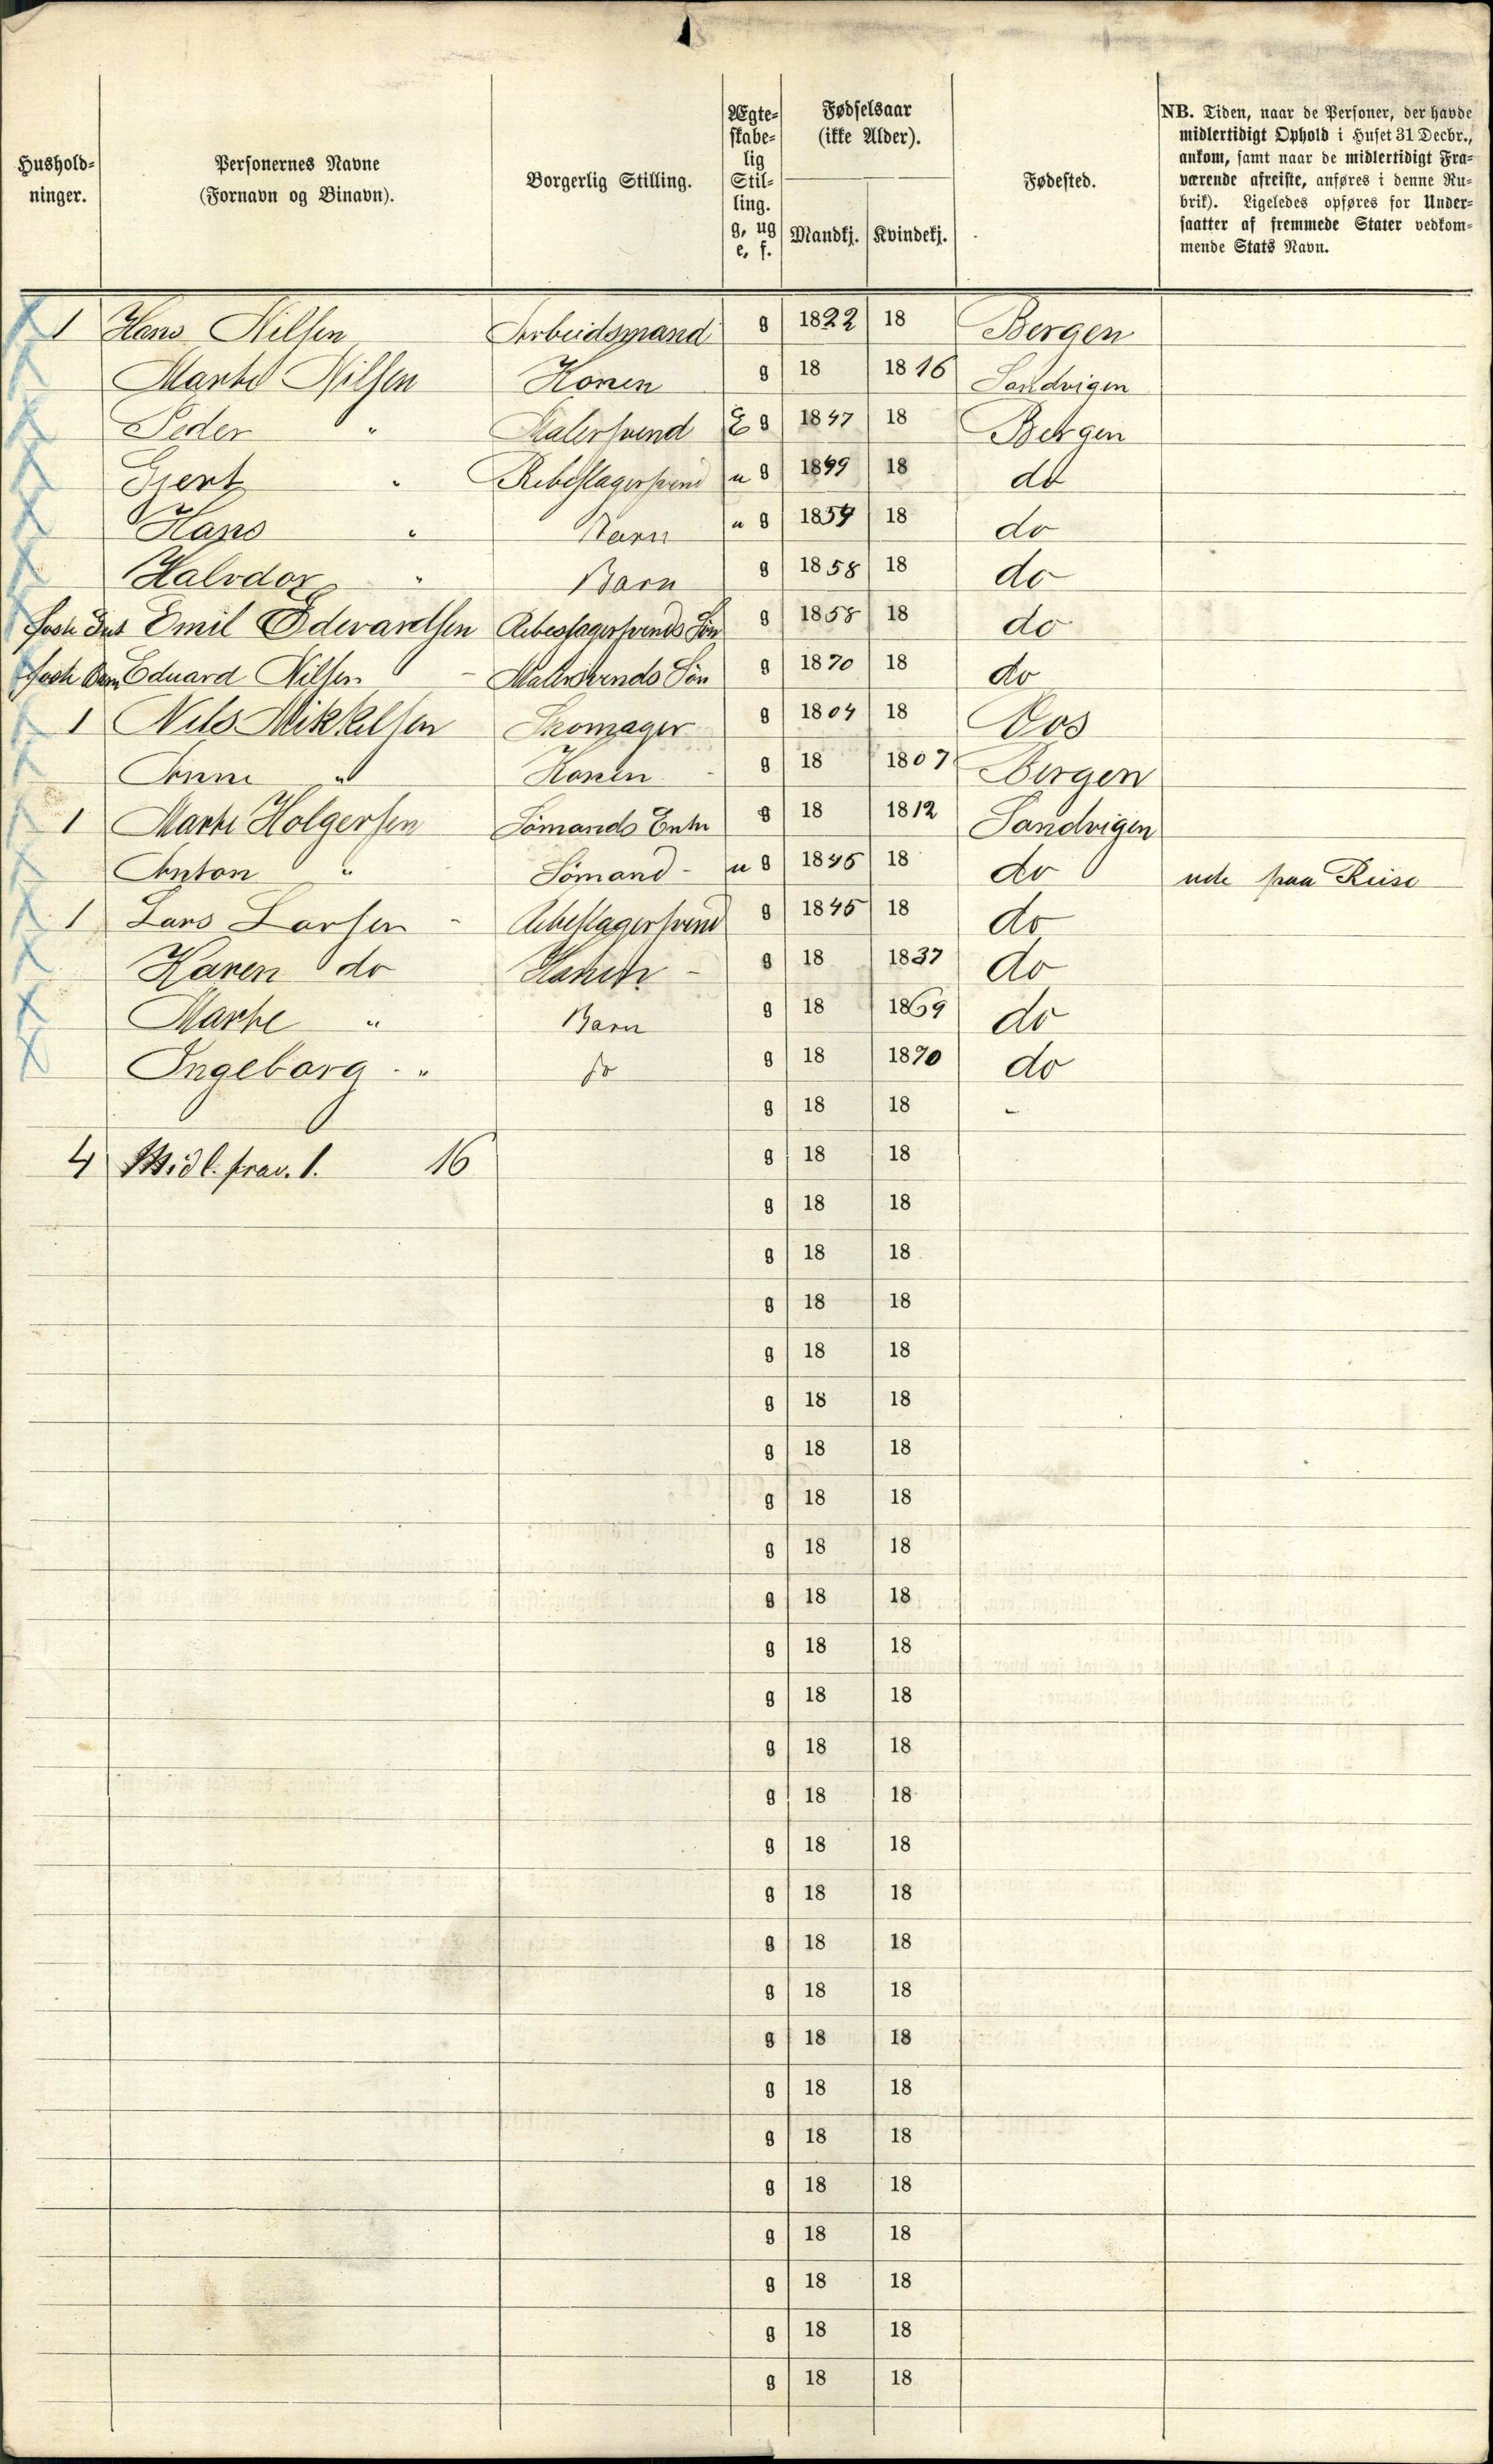 Hushold-ninger. Personernes Navne (Fornavn og Binavn). Borgerlig Stilling. Ægte-skabe-lig Stil-ling. g, ug e, f. Fødselsaar (ikke Alder). Mandkj. Kvindekj. Fødested.
NB. Tiden, naar de Personer, der havde
midlertidigt Ophold i Huset 31 Decbr.,
ankom, samt naar de midlertidigt Fra-
værende afreiste, anføres i denne Ru-
brik). Ligeledes opføres for Under-
saatter af fremmede Stater vedkom-
mende Stats Navn.
1 Hans Nilsen Arbeidsmand g 1822 18 Bergen
Marthe Nilsen Konen g 18 1816 Sandvigen
Peder " Malersvend E g 1847 18 Bergen
Gjert " Rebslagersvend u g 1849 18 do
Hans " Barn u g 1854 18 do
Halvdor " Barn g 1858 18 do
Emil Edevardsen Rebeslagersvends Søn g 1858 18 do
Foste Barn Eduard Nilsen Malersvends Søn g 1870 18 do
1 Nils Mikkelsen Skomager g 1804 18 Vos
Anne " Konen g 18 1807 Bergen
1 Marthe Holgersen Sømands Enke g 18 1812 Sandvigen
Anton " Sømand u g 1846 18 do ude paa Reise
1 Lars Larsen Rebeslagersvend g 1845 18 do
Karen do Konen g 18 1837 do
Marthe " Barn g 18 1869 do
Ingeborg " do g 18 1870 do
g 18 18
4 Midl. frav. 1. 16 g 18 18
g 18 18
g 18 18
g 18 18
g 18 18
g 18 18
g 18 18
g 18 18
g 18 18
g 18 18
g 18 18
g 18 18
g 18 18
g 18 18
g 18 18
g 18 18
g 18 18
g 18 18
g 18 18
g 18 18
g 18 18
g 18 18
g 18 18
g 18 18
g 18 18
g 18 18